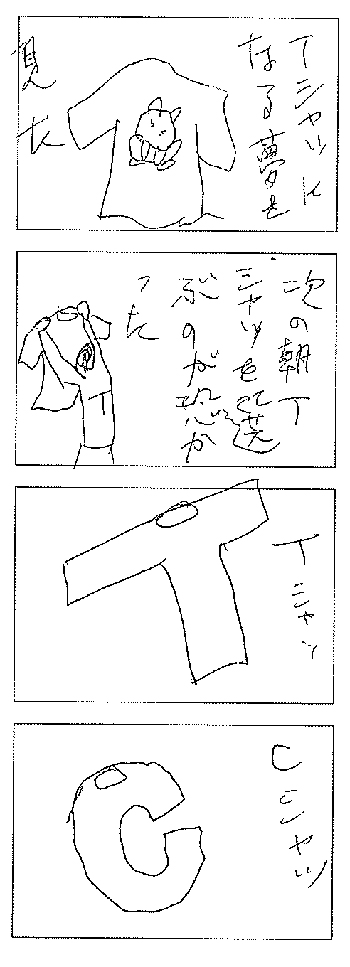 Tシャツに
なる夢を
見た
次の朝T
シャツを選
ぶのが恐か
った
Tシャツ
Cシャツ